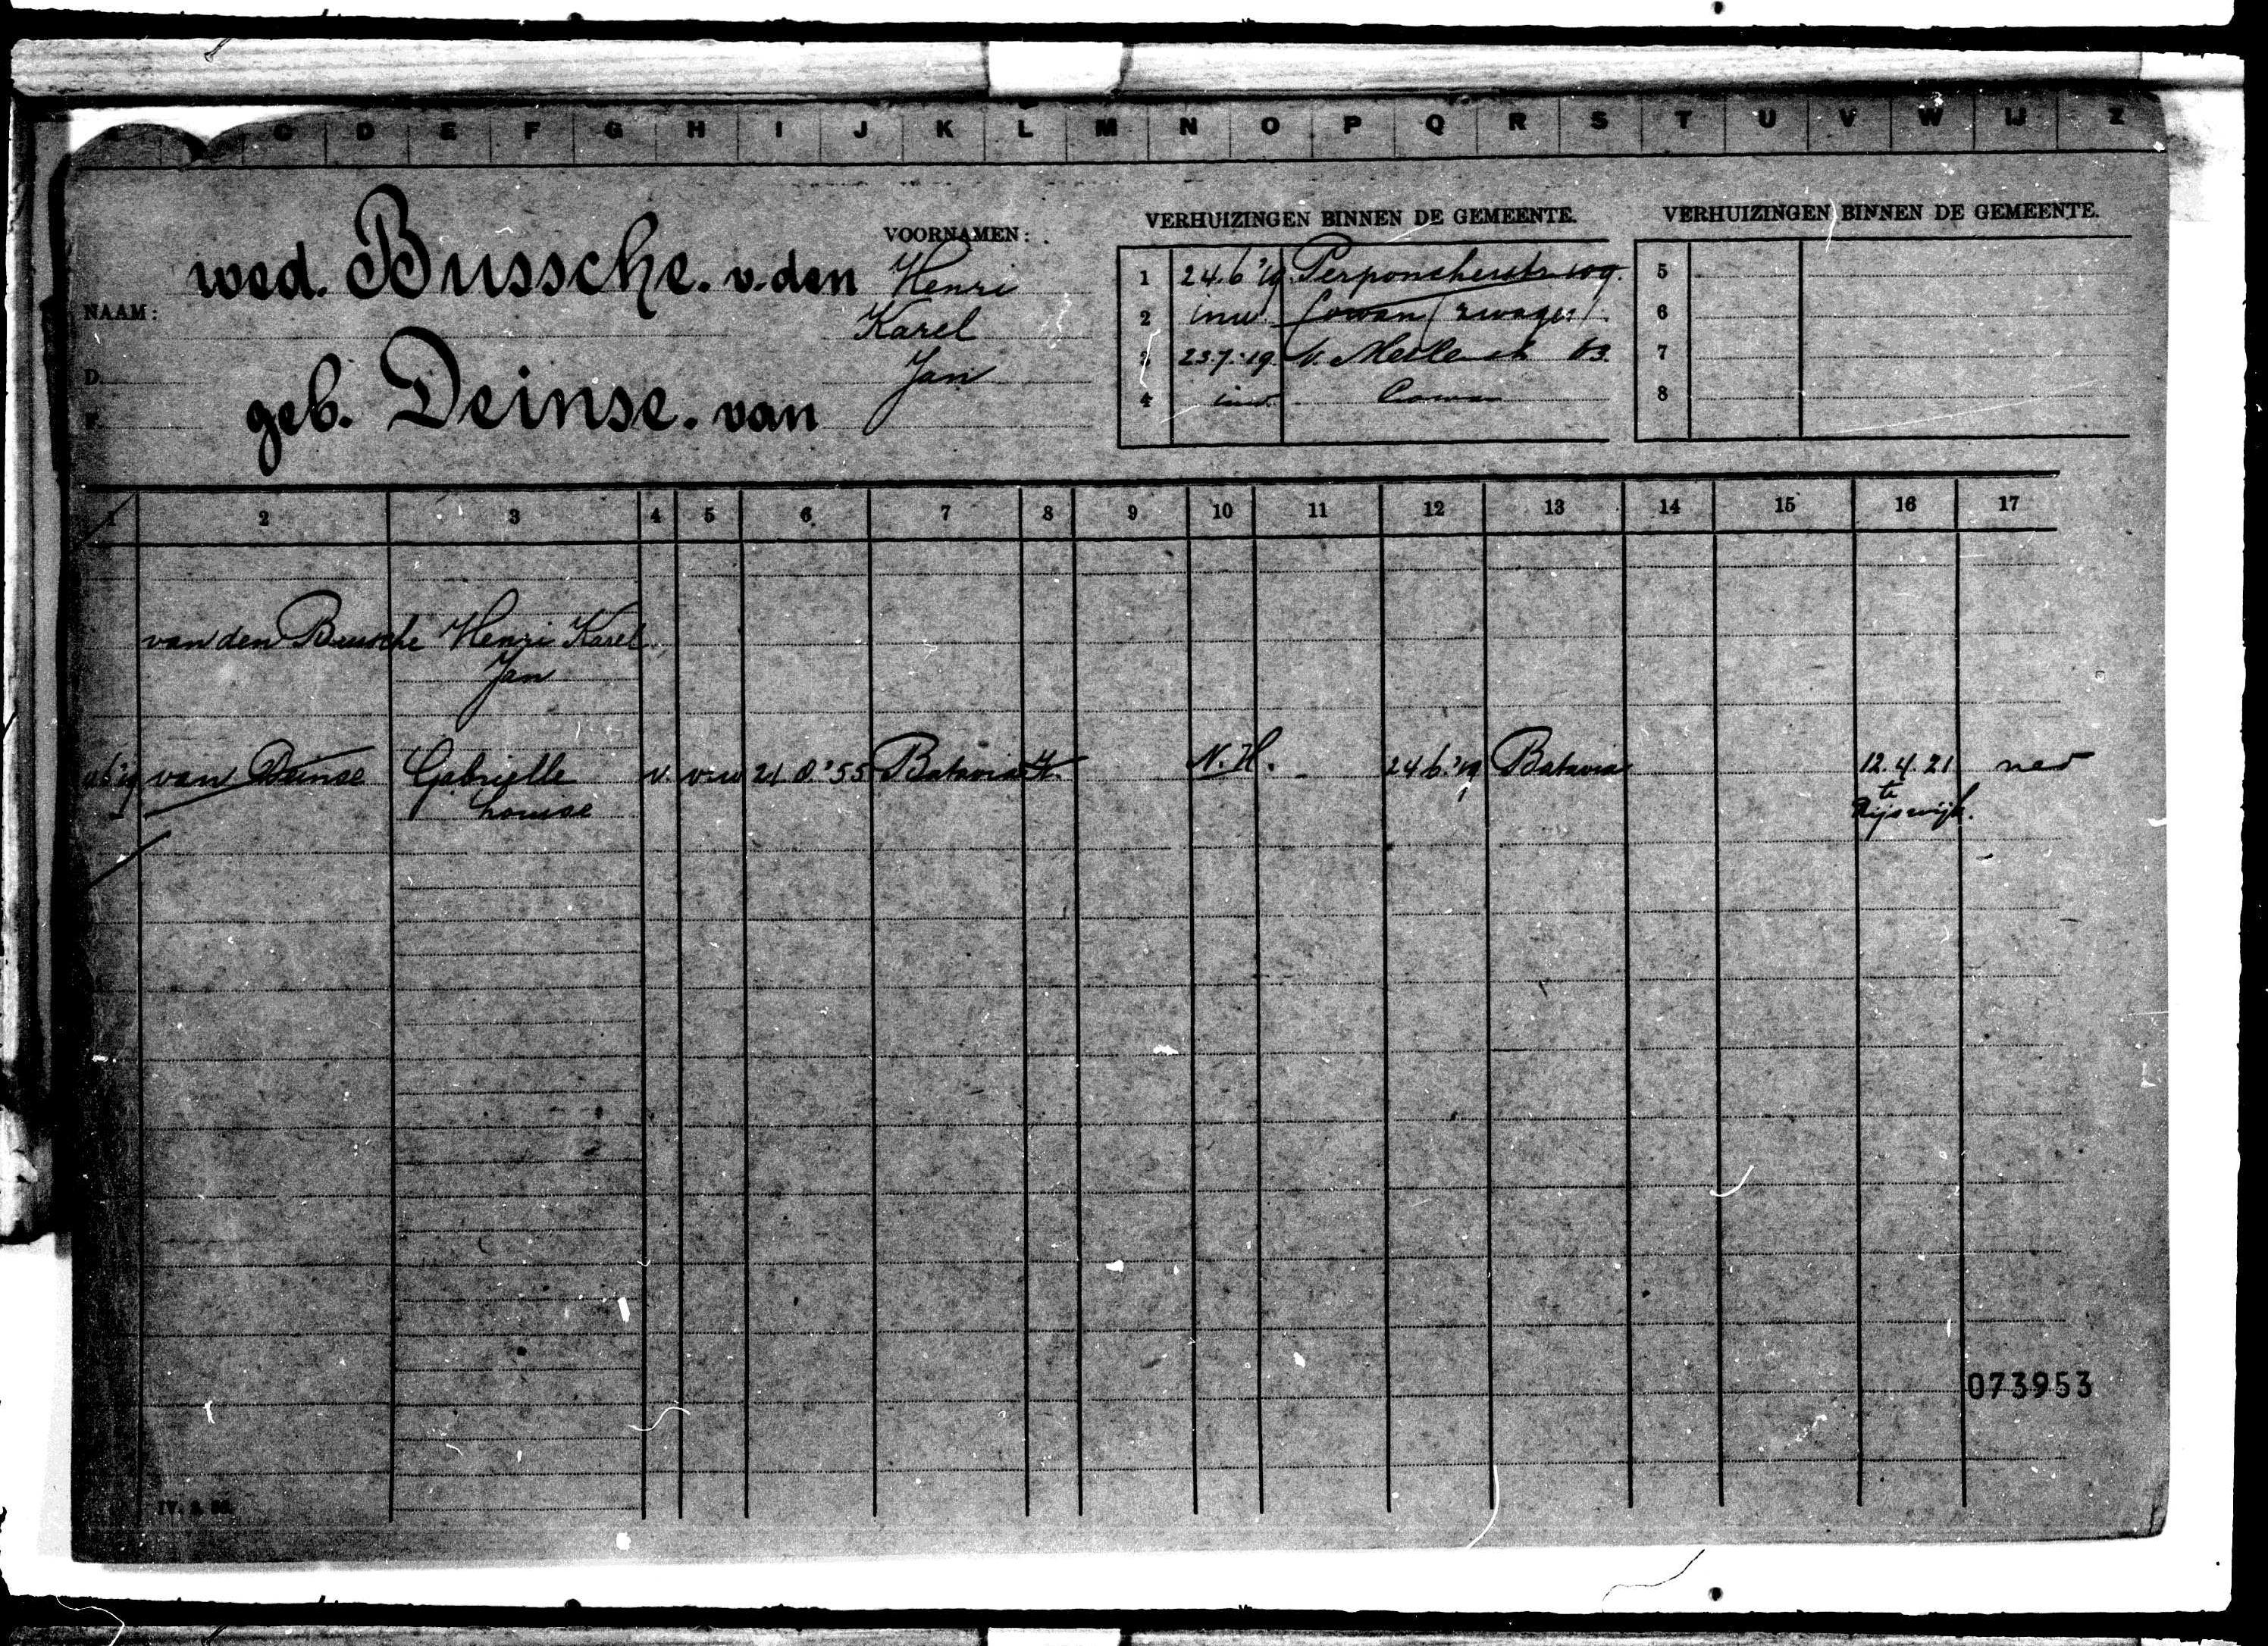 C D E F G H I J K L M N O P Q R S T U V W IJ Z
NAAM:
wed. Bussche. v. den
geb. Deinse. van
D.
F.
VOORNAMEN:
Henri
Karel
Jan
VERHUIZINGEN BINNEN DE GEMEENTE.
1 24.6.'19 Perponcherstr. 109.
2 inw. Cowan (zwager).
3 23.7.'19. v. 63.
4 inw. Cowan
VERHUIZINGEN BINNEN DE GEMEENTE.
5
6
7
8
1 2 3 4 5 6 7 8 9 10 11 12 13 14 15 16 17
van den Bussche Henri Karel
Jan
van Deinse Gabrielle v. v.w 21 '55 Batavia N.H. 24.6.'19 Batavia 12.4.21 ned
Louise te
Rijswijk.
073953